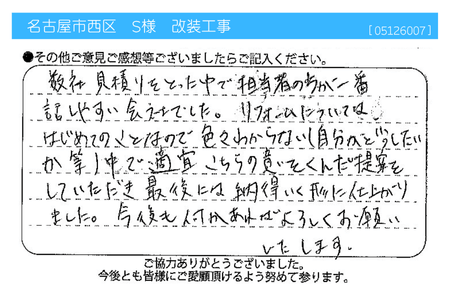 名古屋市西区 S様 改装工事 [05126007]
●その他ご意見ご感想等ございましたらご記入ください。
数社見積りをとった中で担当者の方が一番
話しやすい会社でした。リフォームについては
はじめてのことなので色々わからない(自分がどうしたい
か等)中で適宜こちらの意をくんだ提案を
していただき最後には納得いく形に仕上がり
ました。今後も何かあればよろしくお願い
いたします。
ご協力ありがとうございました。
今後とも皆様にご愛顧頂けるよう努めて参ります。